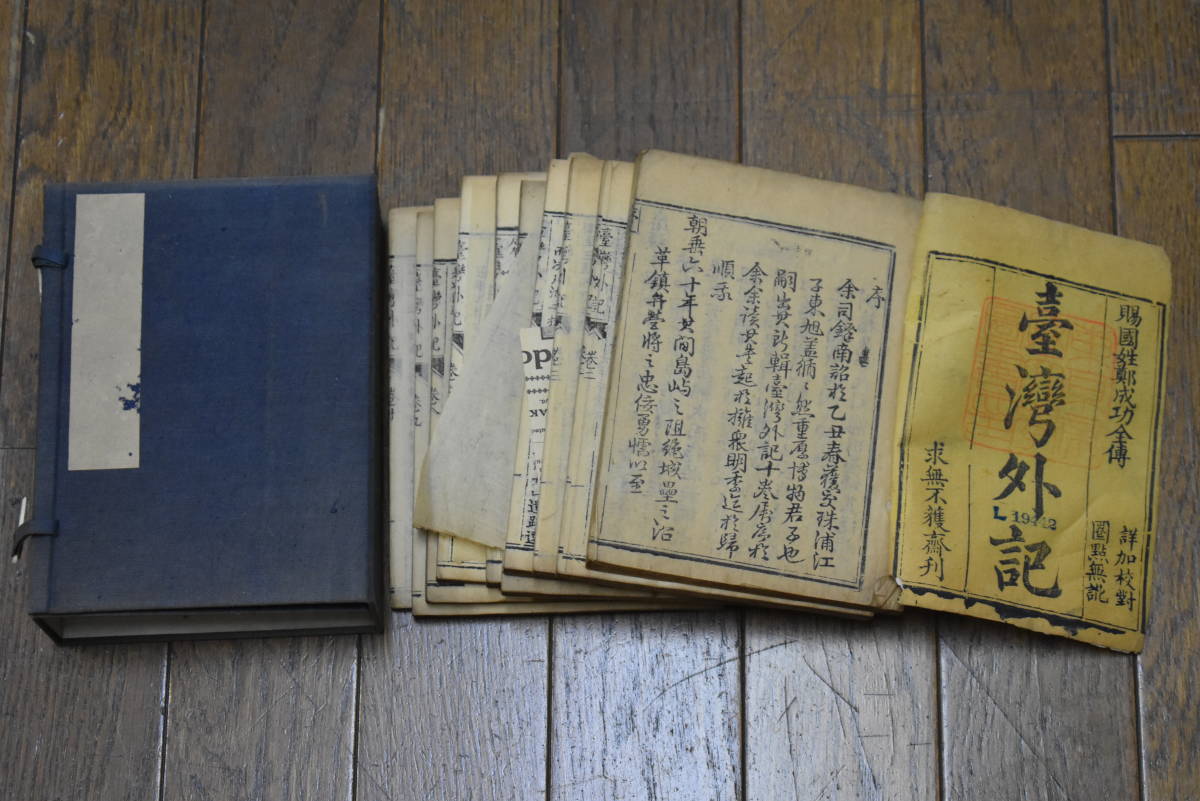 賜國姓鄭成功全傳
臺灣外記
L 19442
詳加校對
圈點無訛
求無不獲齋刊
序
余司鐸南詔於乙丑春獲交珠浦江
子東旭蓋循〻然重厚博物君子也
嗣出其所輯臺灣外記十卷屬序於
余余讀其書起於擁衆明季迄於歸
順我
朝垂六十年其間島嶼之阻絕城壘之沿
革鎮弁營將之忠佞勇懦以至
序
臺灣外記 卷二
卷三
臺灣外記 卷八